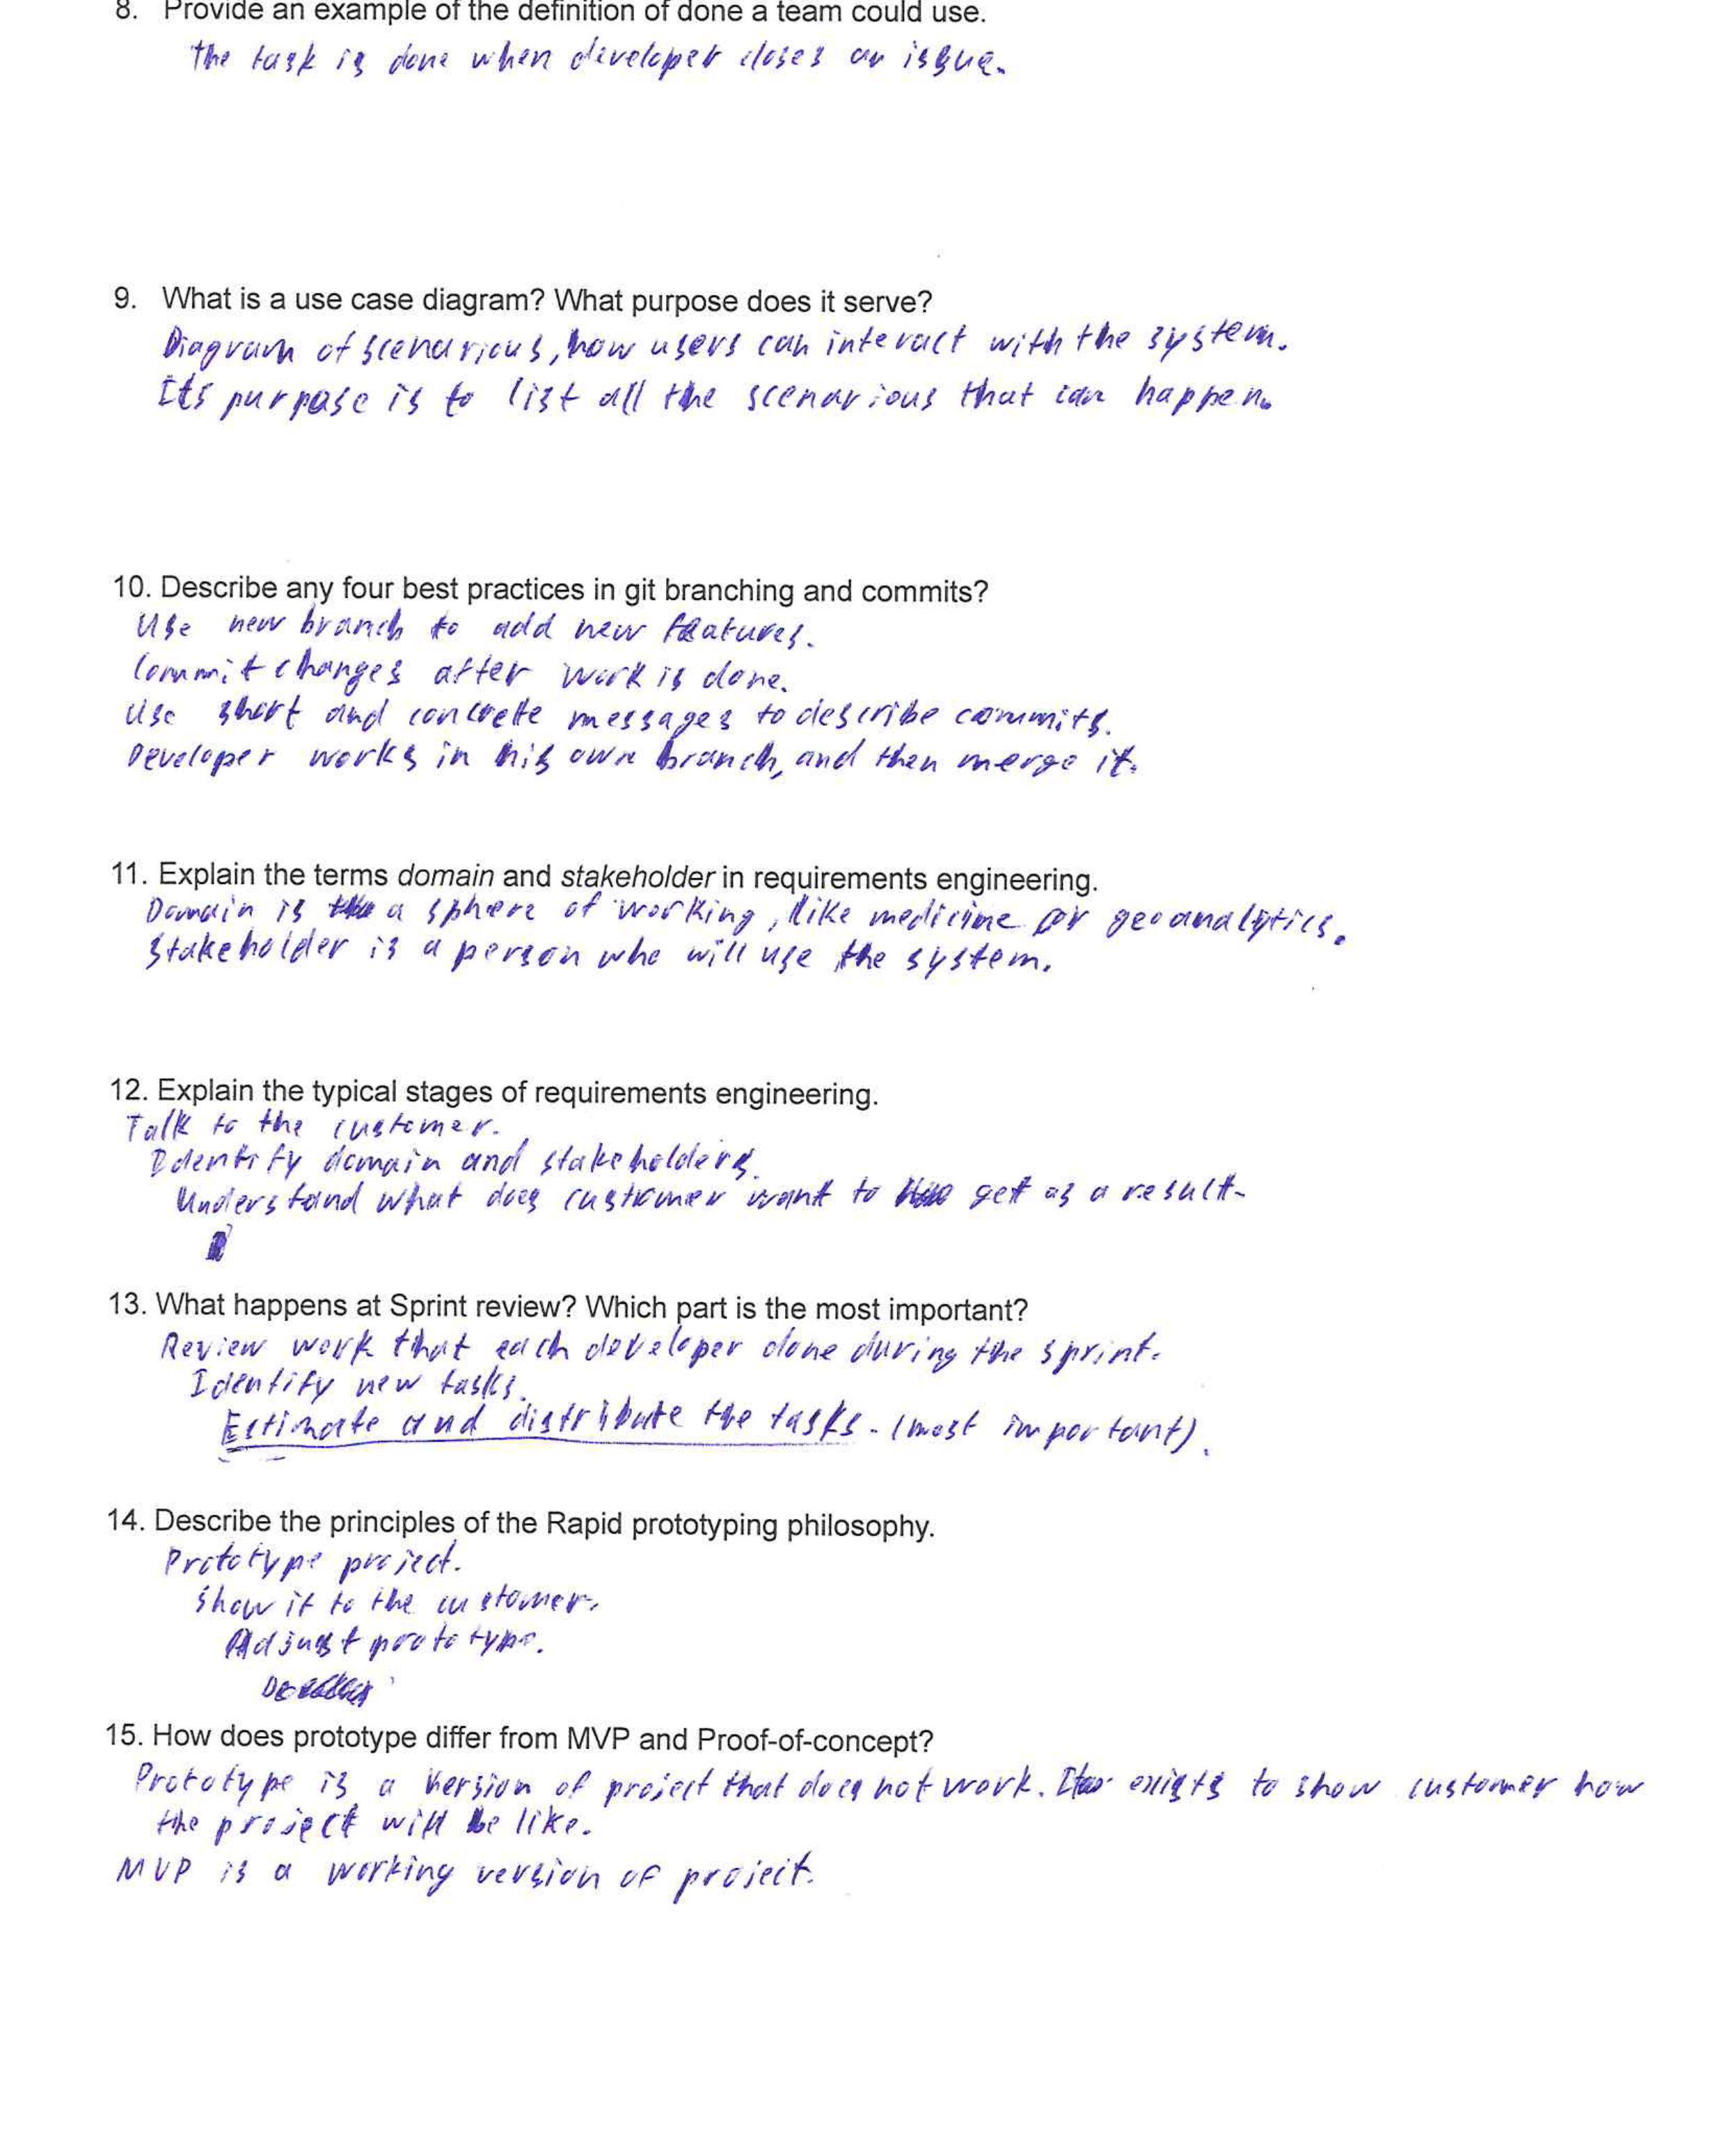 8. Provide an example of the definition of done a team could use.
The task is done when developer closes an issue.
9. What is a use case diagram? What purpose does it serve?
Diagram of scenarious, how users can interact with the system.
Its purpose is to list all the scenarious that can happen.
10. Describe any four best practices in git branching and commits?
Use new branch to add new features.
Commit changes after work is done.
Use short and concrete messages to describe commits.
Developer works in his own branch, and then merge it.
11. Explain the terms domain and stakeholder in requirements engineering.
Domain is a sphere of working, like medicine or geoanalytics.
Stakeholder is a person who will use the system.
12. Explain the typical stages of requirements engineering.
Talk to the customer.
Identify domain and stakeholders.
Understand what does customer want to get as a result.
13. What happens at Sprint review? Which part is the most important?
Review work that each developer done during the sprint.
Identify new tasks.
Estimate and distribute the tasks. (most important).
14. Describe the principles of the Rapid prototyping philosophy.
Prototype project.
Show it to the customer.
Adjust prototype.
15. How does prototype differ from MVP and Proof-of-concept?
Prototype is a version of project that does not work. It exists to show customer how
the project will be like.
MVP is a working version of project.